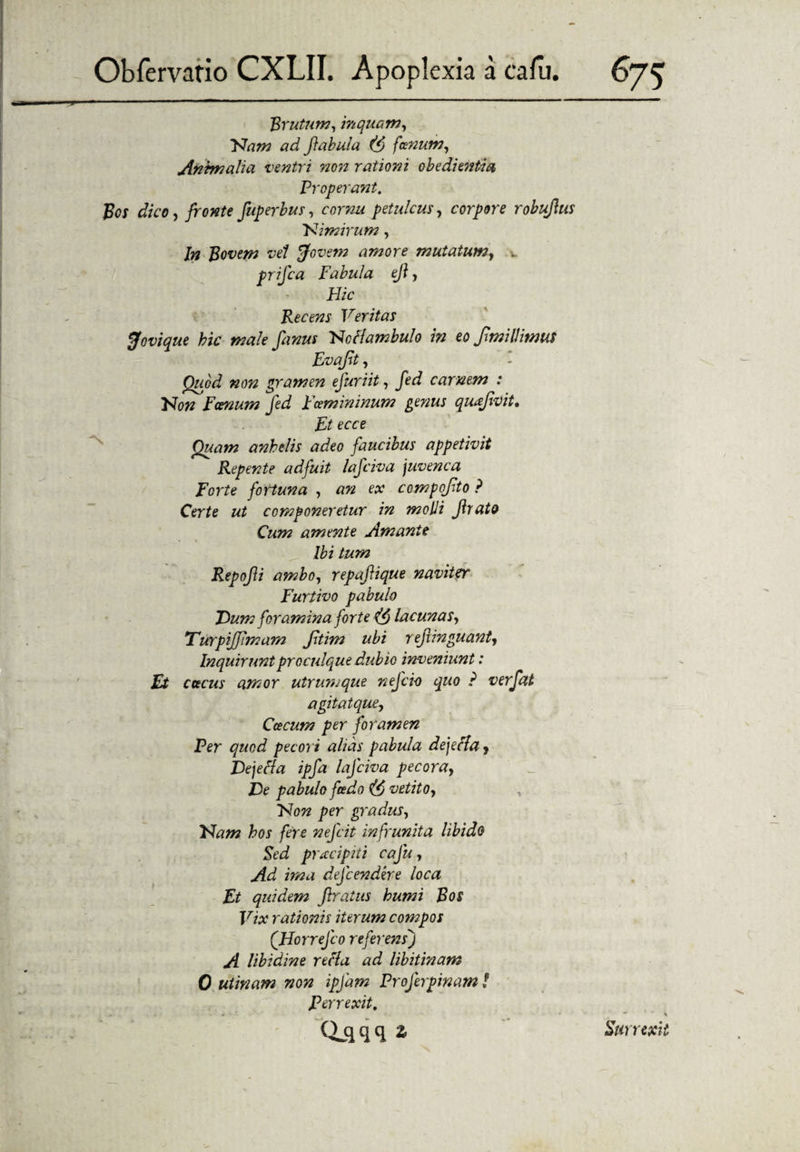 Obſervatio CXLII. Apoplexia à caſu. 675
Brutum, inquam,
Nam ad ſtabula & fœnum,
Animalia ventri non rationi obedientia
Properant.
Bos dico, fronte ſuperbus, cornu petulcus, corpore robuſtus
Nimirum,
In Bovem vel Jovem amore mutatum,
priſca Fabula eſt,
Hic
Recens Veritas
Jovique hic male ſanus Noctambulo in eo ſimillimus
Evaſit,
Quòd non gramen eſuriit, ſed carnem :
Non Fœnum ſed Fœmininum genus quæſivit.
Et ecce
Quam anhelis adeo faucibus appetivit
Repente adfuit laſciva juvenca
Forte fortuna , an ex compoſito ?
Certe ut componeretur in molli ſtrato
Cum amente Amante
Ibi tum
Repoſti ambo, repaſtique naviter
Furtivo pabulo
Dum foramina forte & lacunas,
Turpiſſimam ſitim ubi reſtinguant,
Inquirunt proculque dubio inveniunt :
Et cœcus amor utrumque neſcio quo ? verſat
agitatque,
Cœcum per foramen
Per quod pecori aliàs pabula dejecta,
Dejecta ipſa laſciva pecora,
De pabulo fœdo & vetito,
Non per gradus,
Nam hos fere neſcit infrunita libido
Sed præcipiti caſu,
Ad ima deſcendêre loca
Et quidem ſtratus humi Bos
Vix rationis iterum compos
(Horreſco referens)
A libidine recta ad libitinam
O utinam non ipſam Proſerpinam !
Perrexit.
Qqqq 2 Surrexit